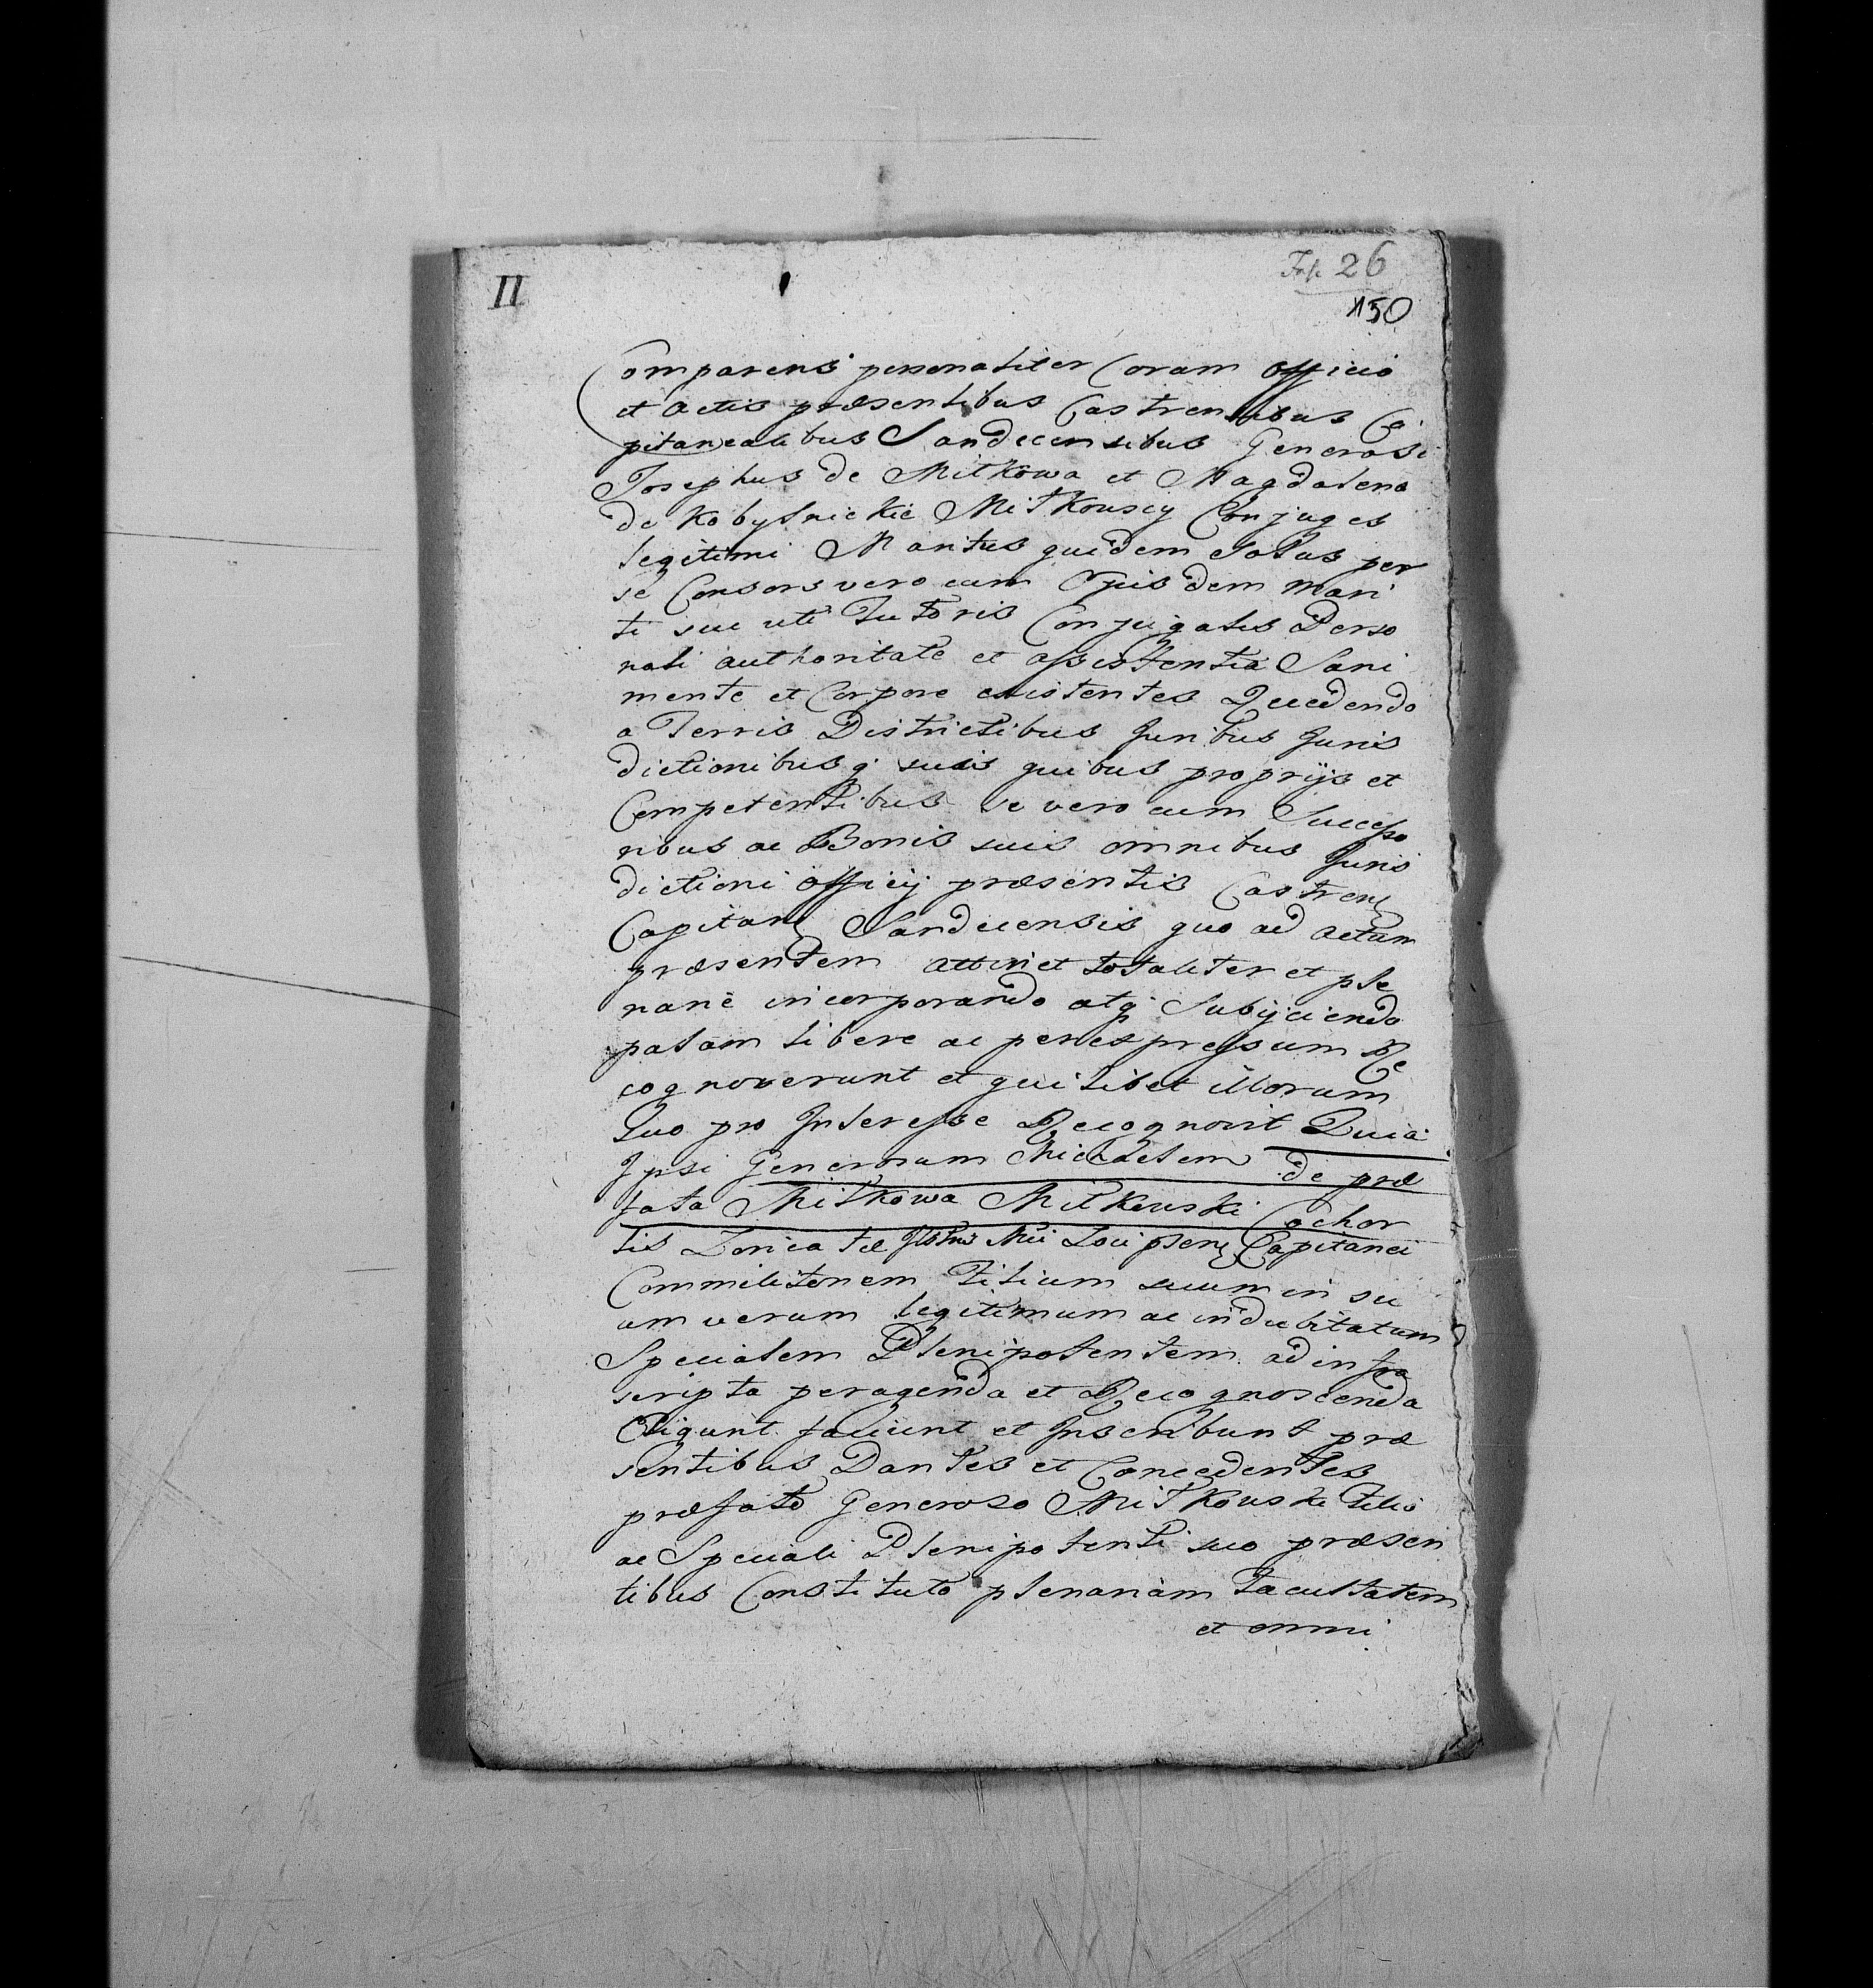 II
Fol. 26
150
Comparens personaliter Coram Officio
et Actis præsentibus Castrensibus Ca
pitanealibus Sandecensibus Generosi
Josephus de Miłkowa et Magdalena
de Kobylnickie Miłkouscy Conjuges
legitimi Maritus quidem Solus per
se Consors vero cum Ejusdem Mari
ti sui uti Tutoris Conjugalis Perso
nali authoritate et assistentia Sani
mente et Corpore existentes Recedendo
a Terris Districtibus Juribus Juris
dictionibusq suis quibus proprijs et
Competentibus se vero cum Successo
ribus ac Bonis suis omnibus Juris
dictioni Officij præsentis Castren
Capitan Sandecensis quo ad actum
præsentem attinet totaliter et ple
narie incorporando atq Subijciendo
palam libere ac per expressum Re
cognoverunt et quilibet illorum
Suo pro Interesse Recognovit Quia
Ipsi Generosum Michaelem de præ
fata Miłkowa Miłkouski Cohor
tis Loricatæ Mci Capitanei
Commilitonem Filium suum in su
um verum legitimum ac indubitatum
Specialem Plenipotentem ad infra
scripta peragenda et Recognoscenda
Eligunt faciunt et Inscribunt præ
sentibus Dantes et Concedentes
præfato Generoso Miłkouski Filio
ac Speciali Plenipotenti suo præsen
tibus Constituto plenariam Facultatem
et omni